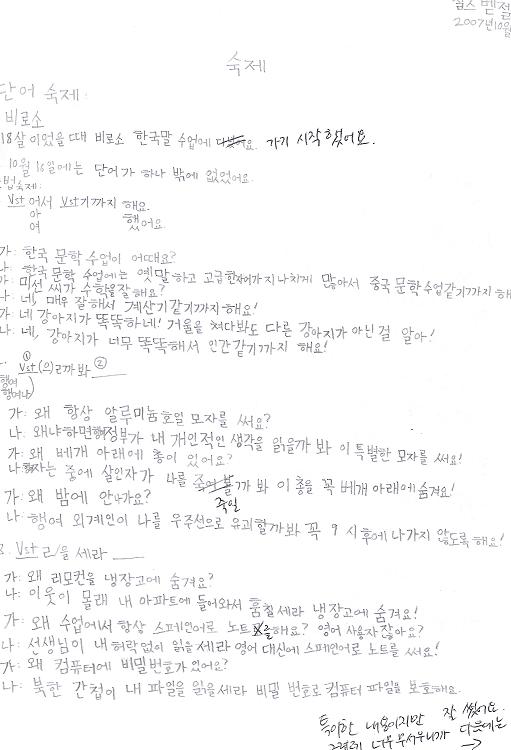 벧절
2007년 10월
숙제
단어 숙제:
비로소
18살이었을 때 비로소 한국말 수업에 가기 시작했어요.
10월 16일에는 단어가 하나 밖에 없었어요.
법숙제:
Vst어서 Vst기까지 해요.
아 했어요.
여
가: 한국 문학 수업이 어때요?
나: 한국 문학 수업에는 옛말하고 고급한자어가 지나치게 많아서 중국 문학 수업 같기까지 해
가: 미선 씨가 수학을 잘 해요?
나: 네, 매우 잘해서 계산기 같기까지 해요!
가: 네 강아지가 똑똑하네! 거울을 쳐다봐도 다른 강아지가 아닌 걸 알아!
나: 네, 강아지가 너무 똑똑해서 인간 같기까지 해요!
① Vst(으)ㄹ까 봐 ②
행여
행여나
가: 왜 항상 알루미늄 호일 모자를 써요?
나: 왜냐하면 정부가 내 개인적인 생각을 읽을까 봐 이 특별한 모자를 써요!
가: 왜 베개 아래에 총이 있어요?
나: 자는 중에 살인자가 나를 죽일까 봐 이 총을 꼭 베개 아래에 숨겨요!
가: 왜 밤에 안 나가요?
나: 행여 외계인이 나를 우주선으로 유괴할까봐 꼭 9시 후에 나가지 않도록 해요!
3. Vst ㄹ/을 세라
가: 왜 리모컨을 냉장고에 숨겨요?
나: 이웃이 몰래 내 아파트에 들어와서 훔칠세라 냉장고에 숨겨요!
가: 왜 수업에서 항상 스페인어로 노트를 해요? 영어 사용자잖아요?
나: 선생님이 내 허락없이 읽을세라 영어 대신에 스페인어로 노트를 써요!
가: 왜 컴퓨터에 비밀번호가 있어요?
나: 북한 간첩이 내 파일을 읽을세라 비밀 번호로 컴퓨터 파일을 보호해요.
특이한 내용이지만 잘 썼어요.
너무 무서우니까 다음에는
→